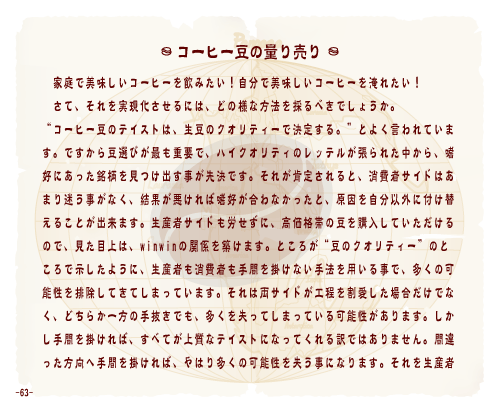 コーヒー豆の量り売り
家庭で美味しいコーヒーを飲みたい！自分で美味しいコーヒーを淹れたい！
さて、それを実現化させるには、どの様な方法を採るべきでしょうか。
“コーヒー豆のテイストは、生豆のクオリティーで決定する。”とよく言われていま
す。ですから豆選びが最も重要で、ハイクオリティのレッテルが張られた中から、嗜
好にあった銘柄を見つけ出す事が先決です。それが肯定されると、消費者サイドはあ
まり迷う事がなく、結果が悪ければ嗜好が合わなかったと、原因を自分以外に付け替
えることが出来ます。生産者サイドも労せずに、高価格帯の豆を購入していただける
ので、見た目上は、winwinの関係を築けます。ところが“豆のクオリティー”のと
ころで示したように、生産者も消費者も手間を掛けない手法を用いる事で、多くの可
能性を排除してきてしまっています。それは両サイドが工程を割愛した場合だけでな
く、どちらか一方の手抜きでも、多くを失ってしまっている可能性があります。しか
し手間を掛ければ、すべてが上質なテイストになってくれる訳ではありません。間違
った方向へ手間を掛ければ、やはり多くの可能性を失う事になります。それを生産者
-63-